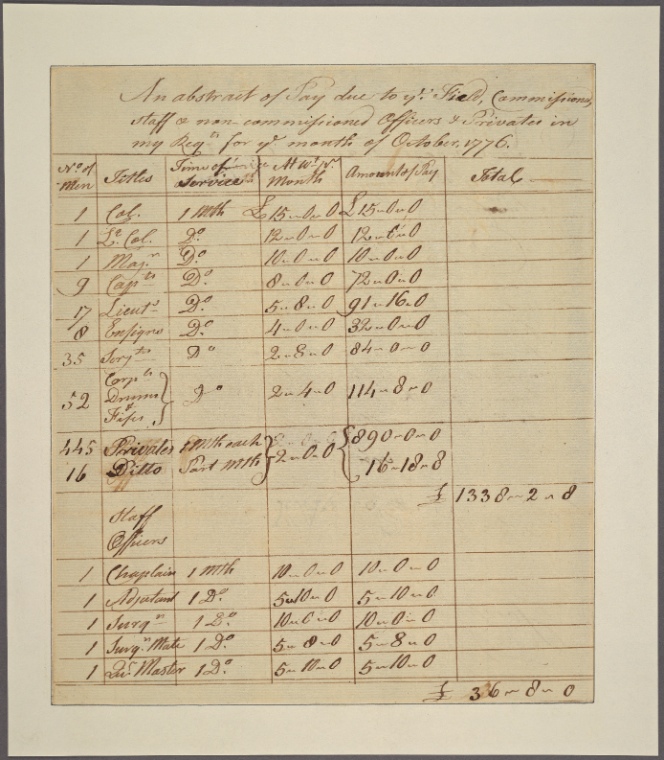 An abstract of Pay due to yᵉ. Field, Commissioned,
Staff & non commissioned Officers & Privates in
my Regᵗ. for yᵉ. month of October, 1776.
Nº. of Men Titles Time of Service At Wᵗ. pʳ. Month Amount of Pay Total
1 Col. 1 Mth £15 - 0 - 0 £15 - 0 - 0
1 Lᵗ. Col. Dº. 12 - 0 - 0 12 - 0 - 0
1 Majʳ. Dº. 10 - 0 - 0 10 - 0 - 0
9 Capᵗˢ Dº. 8 - 0 - 0 72 - 0 - 0
17 Lieutˢ. Dº. 5 - 8 - 0 91 - 16 - 0
8 Ensigns Dº. 4 - 0 - 0 32 - 0 - 0
35 Sergᵗˢ Dº 2 - 8 - 0 84 - 0 - 0
52 Corpˡˢ Drums & Fifes } Dº 2 - 4 - 0 114 - 8 - 0
445 Privates 1 Mth each } 2 - 0 - 0 { 890 - 0 - 0
16 Ditto Part Mth 16 - 18 - 8
£ 1338 - 2 - 8
Staff
Officers
1 Chaplain 1 Mth 10 - 0 - 0 10 - 0 - 0
1 Adjutant 1 Dº. 5 - 10 - 0 5 - 10 - 0
1 Surgⁿ 1 Dº. 10 - 0 - 0 10 - 0 - 0
1 Surgⁿ Mate 1 Dº. 5 - 8 - 0 5 - 8 - 0
1 Qʳ. Master 1 Dº. 5 - 10 - 0 5 - 10 - 0
£ 36 - 8 - 0